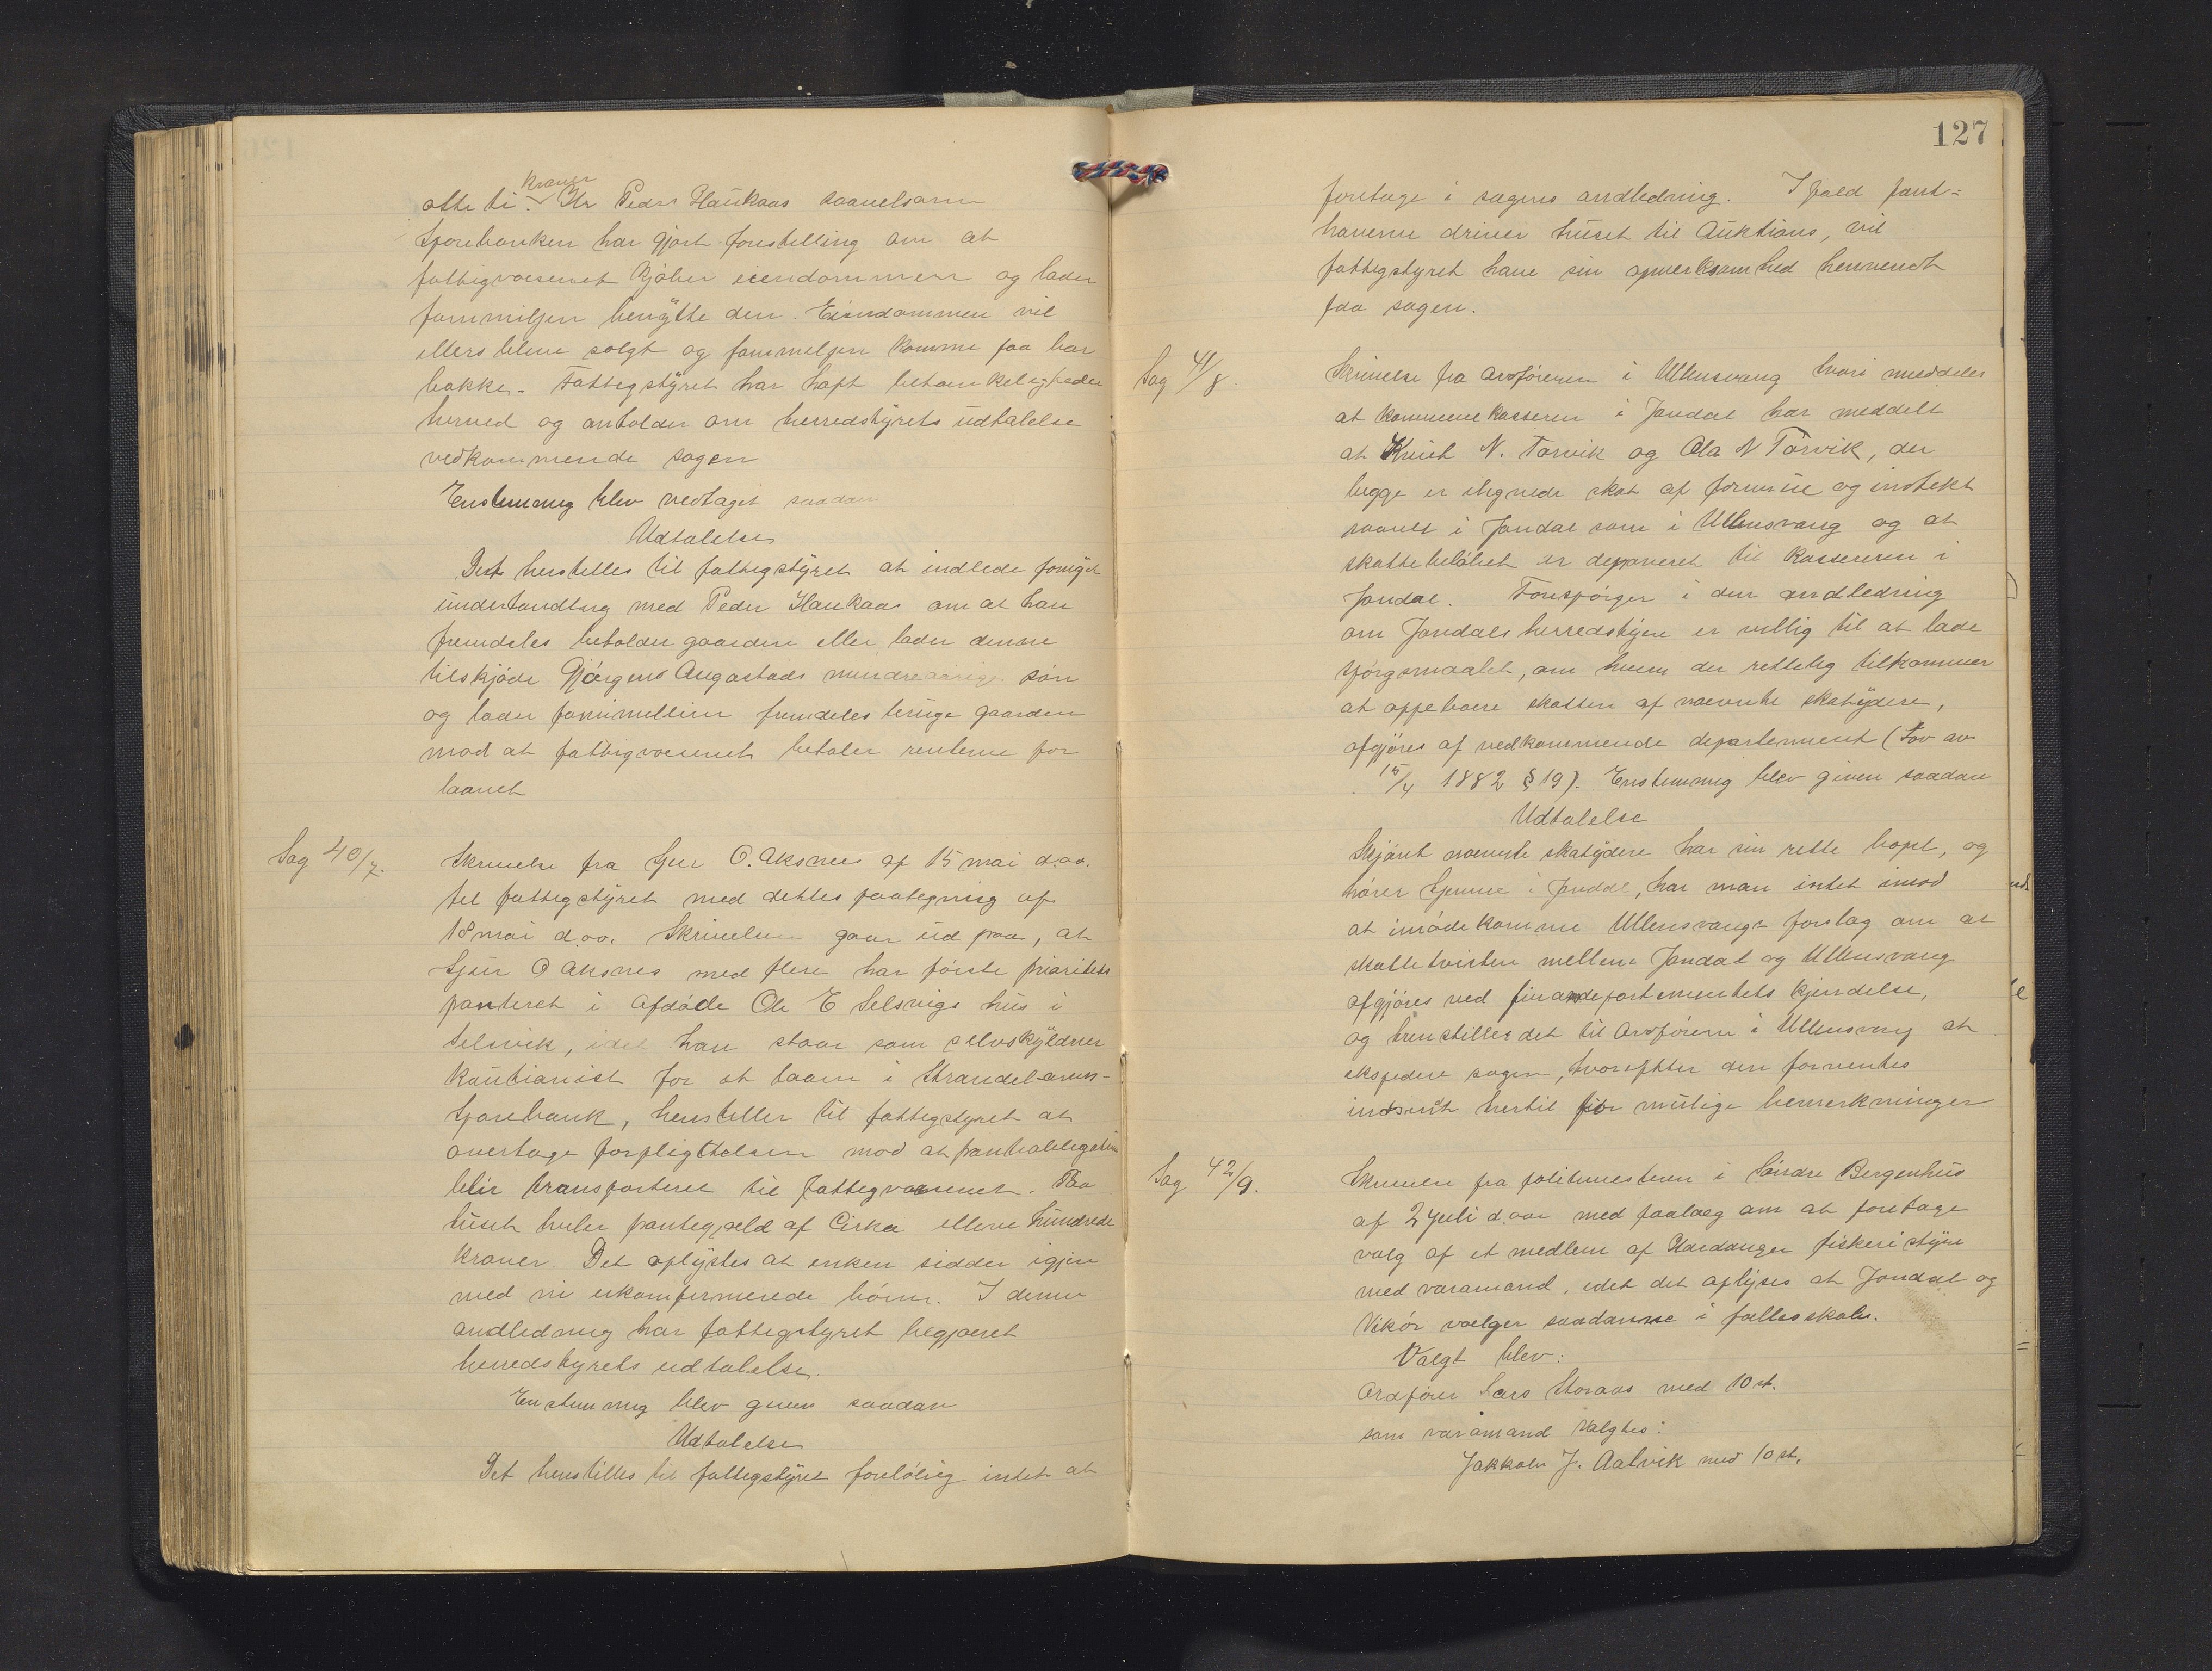 otte ti kroner. Hr Peder Haukaas saavelsom
Sparebanken har gjort forestilling om at
fattigvæsenet kjøber eiendommen og lader
fammiljen benytte den. Eiendommen vil
ellers blive solgt og fammeljen komme paa bar
bakke. Fattigstyret har haft betænkeligheder
herved og anholder om herredstyrets udtalelse
vedkommende sagen
Enstemmig blev vedtaget saadan
Udtalelse
Det henstilles til fattigstyret at indlede fornyet
underhandling med Peder Haukaas om at han
fremdeles beholder gaarden eller lader denne
tilskjøde Gjørgens Augastads mindreaarige søn
og lader fammilien fremdeles bruge gaarden
mod at fattigvæsenet betaler renterne for
laanet
Sag 40/7.
Skrivelse fra Sjur O. Aksnes af 15 mai d.aa.
til fattigstyret med dettes paategning af
18 mai d.aa. Skrivelsen gaar ud paa, at
Sjur O Aksnes med flere har første prioritets
panteret i afdøde Ole E Selsvigs hus i
Selsvik, idet han staar som selvskyldner
kautionist for et laan i Strandebarms-
Sparebank, henstiller til fattigstyret at
overtage forpligttelsen mod at pantobligation
blir transporteret til fattigvæsenet. Paa
huset hviler pantegjæld af Cirka elleve hundrede
kroner. Det oplystes at enken sidder igjen
med ni ukomfirmerede børn. I denne
andledning har fattigstyret begjæret
herredstyrets udtalelse.
Enstemmig blev given saadan
Udtalelse
Det henstilles til fattigstyret foreløbig intet at
127
foretage i sagens andledning. Ifald pant-
haverne driver huset til Auktions, vil
fattigstyret have sin opmerksomhed henvendt
paa sagen.
Sag 41/8.
Skrivelse fra ordføreren i Ullensvang hvori meddeles
at kommunekasseren i Jondal har meddelt
at Knut N. Torvik og Ola N Torvik, der
begge er ilignede skat af formue og indtekt
saavel i Jondal som i Ullensvang og at
skattebeløbet er deponeret til Kassereren i
Jondal. Forespørger i den andledning
om Jondals herredstyre er villig til at lade
spørgsmaalet, om hvem der rettelig tilkommer
at oppebære skatten af nævnte skatydere,
afgjøres af vedkommende departement (Lov av
15/4 1882 § 19). Enstemmig blev given saadan
Udtalelse
Skjønt nævnte skatydere har sin rette bopel, og
hører hjemme i Jondal, har man intet imod
at imødekomme Ullensvangs forslag om at
skattetvisten mellem Jondal og Ullensvang
afgjøres ved finansdepartementets kjendelse,
og henstilles det til ordføreren i Ullensvang at
ekspedere sagen, hvorefter den forventes
indsendt hertil for mulige bemerkninger
Sag 42/9.
Skrivelse fra politimesteren i Søndre Bergenhus
af 2 juli d.aar med paalæg om at foretage
valg af et medlem af Hardanger fiskeristyre
med varamand, idet det oplyses at Jondal og
Vikør vælger saadanne i fællesskab.
Valgt blev:
Ordfører Lars Storaas med 10 st.
som varamand valgtes:
Jakkob J. Aalvik med 10 st.